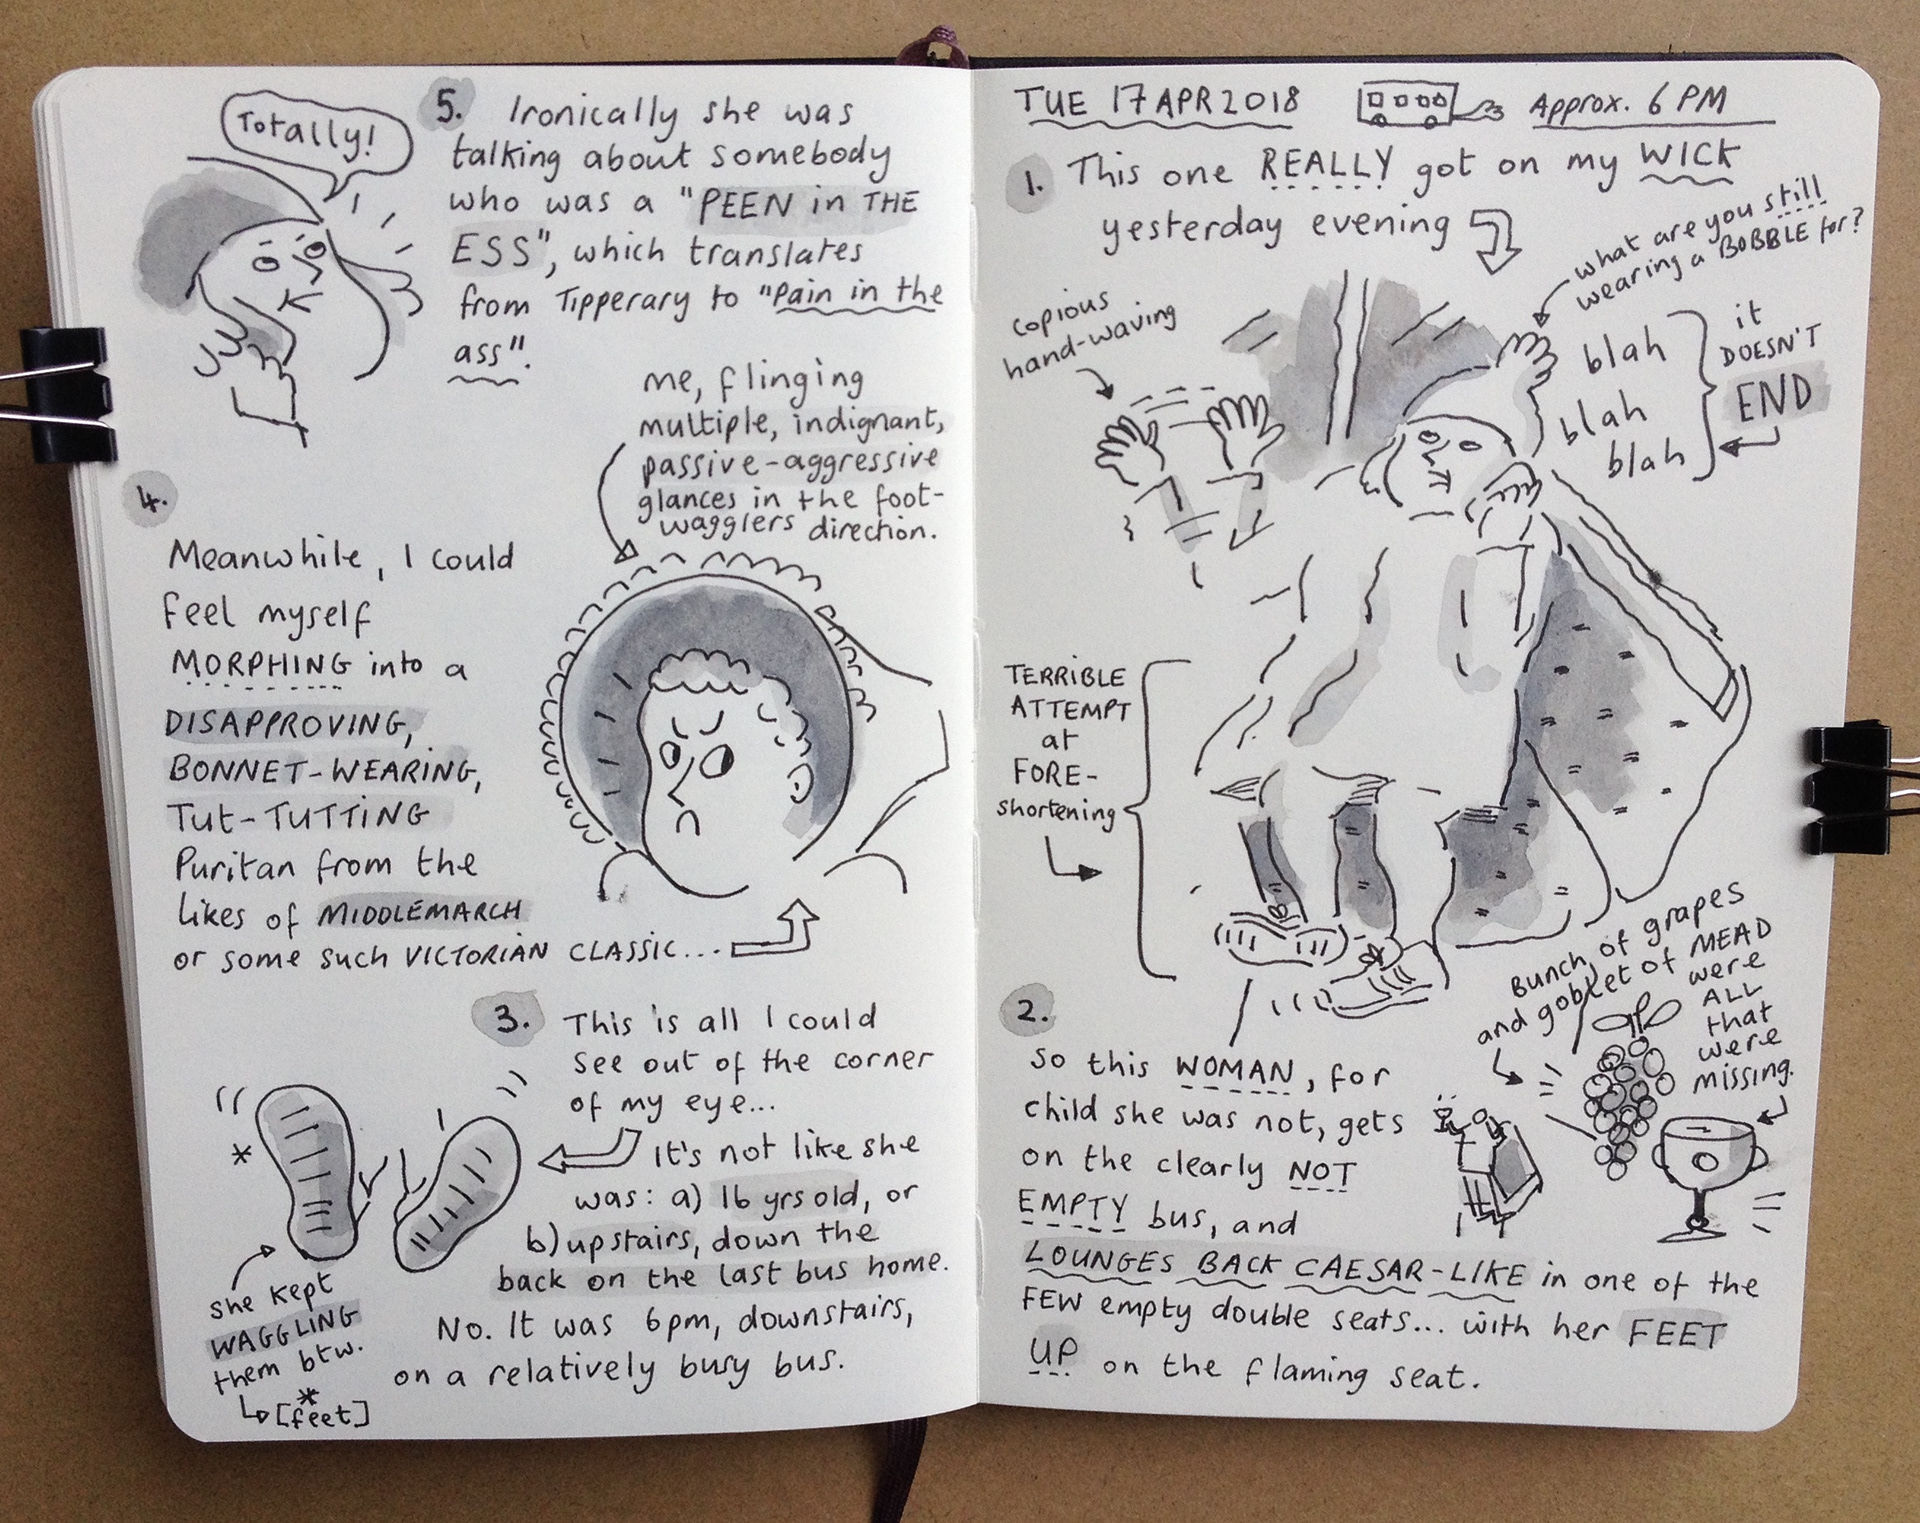 TUE 17 APR 2018
Approx. 6 PM
1. This one REALLY got on my WICK
yesterday evening
what are you still
wearing a BOBBLE for?
copious
hand-waving
blah
blah
blah
it
DOESN'T
END
TERRIBLE
ATTEMPT
at
FORE-
shortening
2.
so this WOMAN, for
child she was not, gets
on the clearly NOT
EMPTY bus, and
LOUNGES BACK CAESAR-LIKE in one of the
FEW empty double seats... with her FEET
UP on the flaming seat.
Bunch of grapes
and goblet of MEAD
were
ALL
that
were
missing.
3. This is all I could
see out of the corner
of my eye...
It's not like she
was: a) 16 yrs old, or
b) upstairs, down the
back on the last bus home.
No. It was 6pm, downstairs,
on a relatively busy bus.
*
she kept
WAGGLING
them btw.
*
[feet]
4.
Meanwhile, I could
feel myself
MORPHING into a
DISAPPROVING,
BONNET-WEARING,
TUT-TUTTING
Puritan from the
likes of MIDDLEMARCH
or some such VICTORIAN CLASSIC...
me, flinging
multiple, indignant,
passive-aggressive
glances in the foot-
wagglers direction.
5. Ironically she was
talking about somebody
who was a "PEEN in THE
ESS", which translates
from Tipperary to "Pain in the
ass".
Totally!